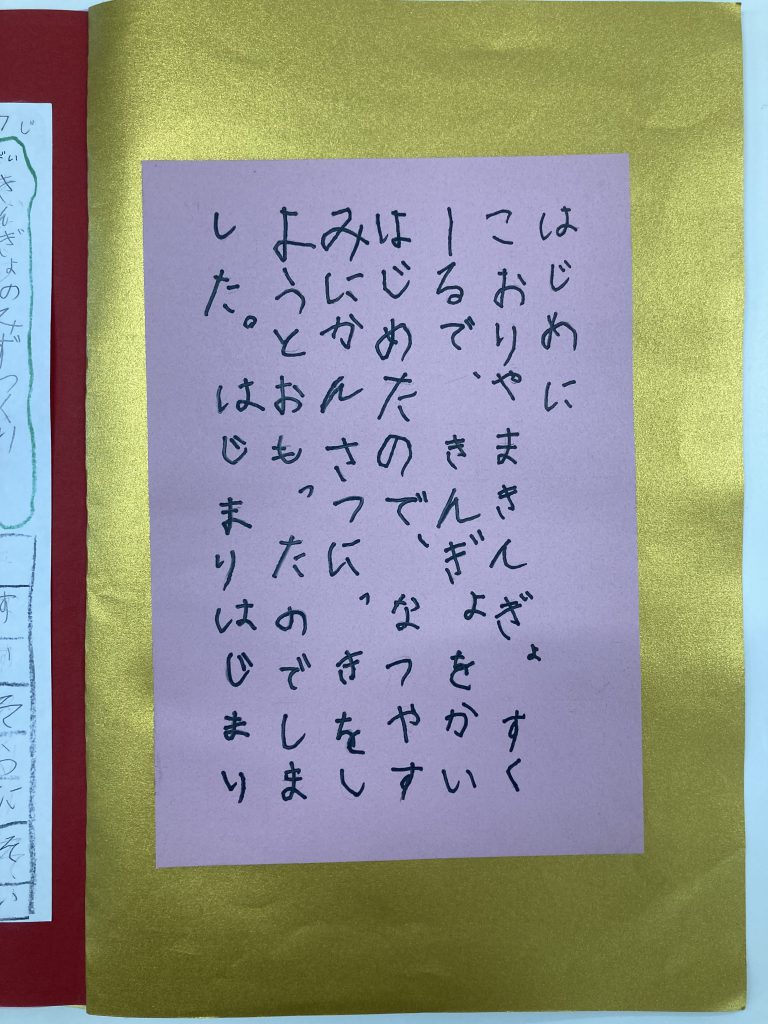 はじめに
こおりやまきんぎょすく
ーるで、きんぎょをかい
はじめたので、なつやす
みにかんさつにっきをし
ようとおもったのでしま
した。はじまりはじまり
きんぎょのみずつくり